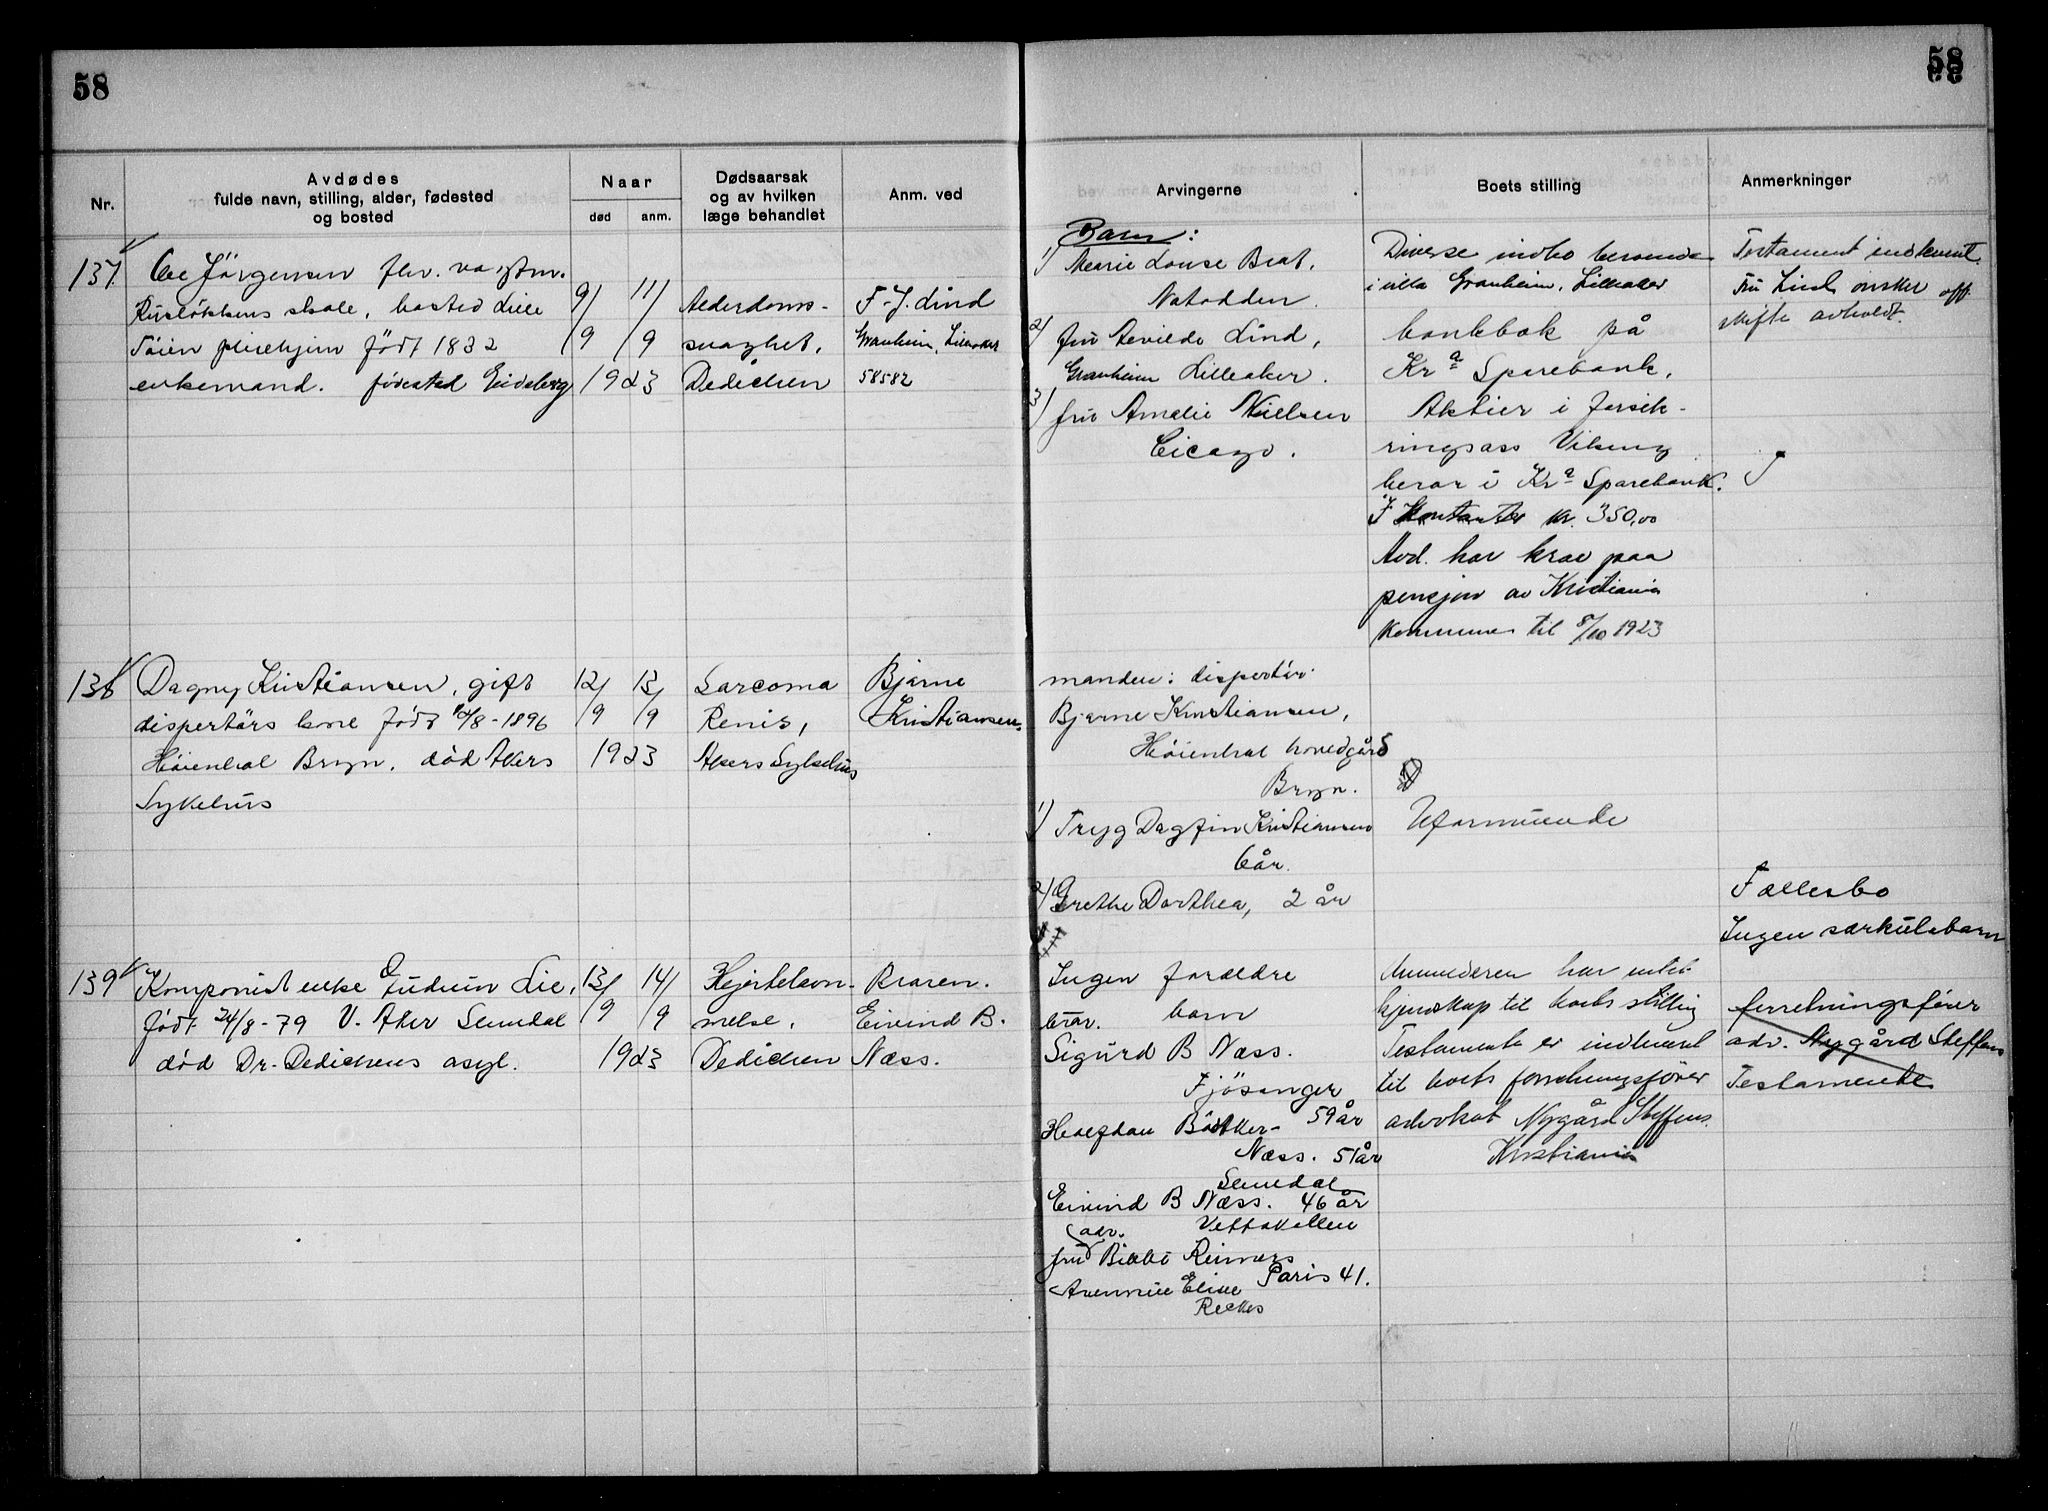 58
58
Nr.
Avdødes
fulde navn, stilling, alder, fødested
og bosted
Naar
død
anm.
Dødsaarsak
og av hvilken
læge behandlet
Anm. ved
Arvingerne
Boets stilling
Anmerkninger
137.
Ole Jörgensen fhv. vagtm.
Ruselökkens skole, bosted Lille
Töien pleiehjem født 1832
enkemand. fødested Eidsberg
9/9
11/9
1923
Alderdoms-
svaghet.
Dedichen
F. J. Lind
Granheim, Lilleaker
58582
Barn:
1) Marie Louse Brat,
Notodden.
2) fru Alvilde Lind,
Granheim Lilleaker.
3) fru Amalie Nielsen
Cicago.
Diverse indbo beroende
i villa Granheim, Lilleaker
bankbok på
Kra Sparebank.
Aktier i forsik-
ringsass Viking
beror i Kra Sparebank.
Kontanter kr. 350,00
Avd. har krav paa
pensjon av Kristiania
kommune til 8/10 1923
Testament indkomt.
Fru Lind ønsker off.
skifte avholdt.
138
Dagny Kristiansen, gift
dispertörs kone født /8-1896
Höienhal Bryn. död Akers
Sykehus
12/9
13/9
1923
Sarcoma
Renis,
Akers Sykehus
Bjarne
Kristiansen.
manden: dispertör
Bjarne Kristiansen,
Höienhal hovedgård
Bryn.
1) Tryg Dagfin Kristiansen
6 år.
2) Grethe Dorthea, 2 år
Uformuende
Fællesbo
Ingen særkulsbarn
139
Komponist enke Gudrun Lie,
født 24/8-79 V. Aker Slemdal
død Dr. Dedichens asyl.
13/9
14/9
1923
Hjertelam-
melse.
Dedichen
Broren.
Eivind B.
Næss.
Ingen forældre
brør. barn
Sigurd B Næss.
Fjösanger
59 år
Halfdan Bödtker-
Næss. 51 år
Slemdal
Eivind B Næss. 46 år
adv. Vettakollen
fru Bibbi Reimers
Paris 41.
Avenniue Elise
Reclus
Anmelderen har intet
kjenskap til boets stilling
Testamente er indleveret
til boets forretningsfører
advokat Nygård Steffens.
Kristiania
forretningsfører
adv. Nygård Steffens
Testamente